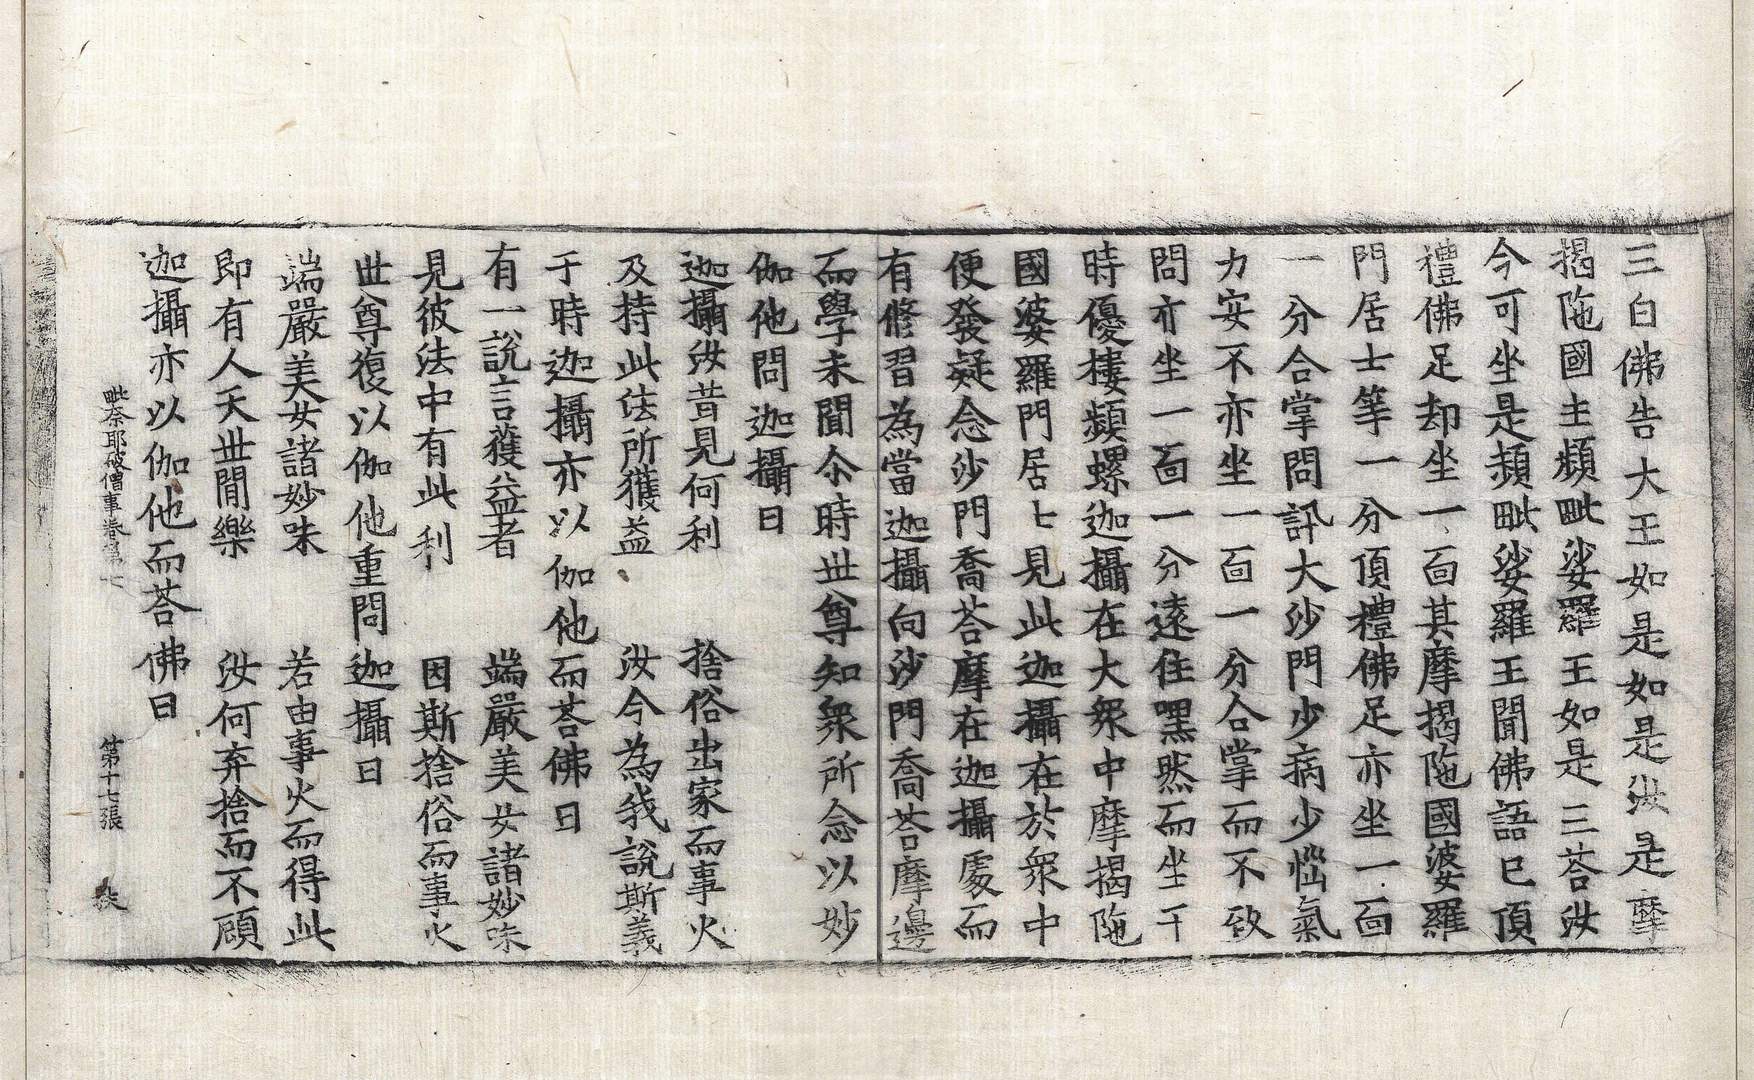 三白佛告大王如是如是汝是摩
揭陁國主頻毗娑羅王如是三荅汝
今可坐是頻毗娑羅王聞佛語已頂
禮佛足却坐一面其摩揭陁國婆羅
門居士等一分頂禮佛足亦坐一面
一分合掌問訊大沙門少病少惱氣
力安不亦坐一面一分合掌而不致
問亦坐一面一分遠住嘿然而坐于
時優樓頻螺迦攝在大衆中摩揭陁
國婆羅門居士見此迦攝在於衆中
便發疑念沙門喬荅摩在迦攝處而
有修習為當迦攝向沙門喬荅摩邊
而學未聞尒時世尊知衆所念以妙
伽他問迦攝曰
迦攝汝昔見何利　捨俗出家而事火
及持此法所獲益　汝今為我說斯義
于時迦攝亦以伽他而荅佛曰
有一說言獲益者　端嚴美女諸妙味
見彼法中有此利　因斯捨俗而事火
世尊復以伽他重問迦攝曰
端嚴美女諸妙味　若由事火而得此
即有人天世間樂　汝何弃捨而不顧
迦攝亦以伽他而荅佛曰
毗奈耶破僧事卷第七　第十七張